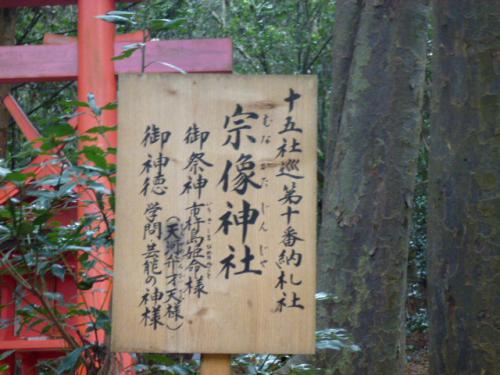 十五社巡第十番納札社
宗像神社
むなかたじんじゃ
御祭神 市杵島姫命様
（天河弁才天様）
御神徳 学問芸能の神様